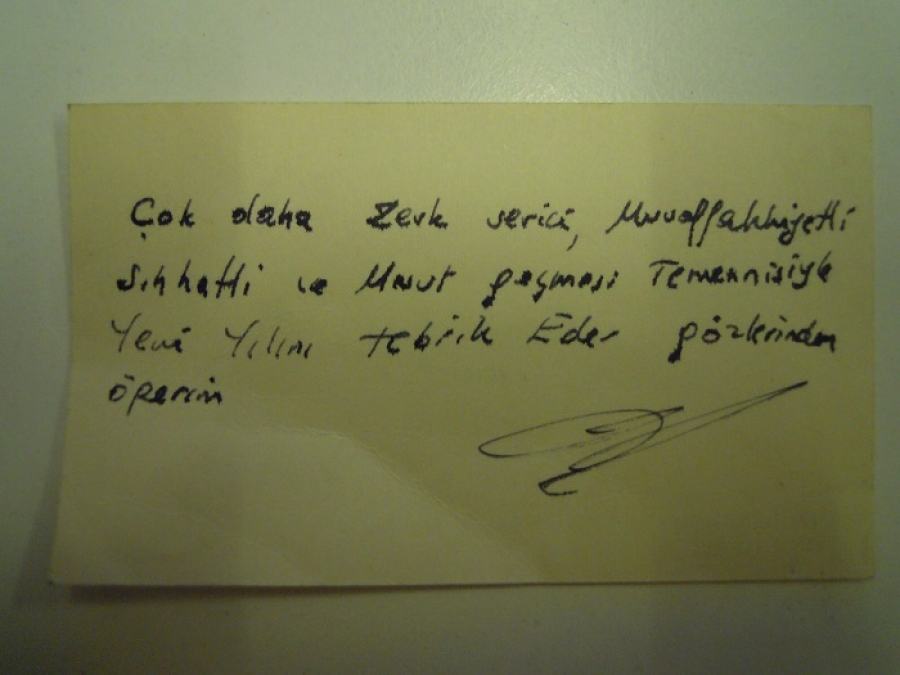 Çok daha Zevk verici, Muvaffakkiyetli
Sıhhatli ve Mesut geçmesi Temennisiyle
Yeni Yılını tebrik Eder gözlerinden
öperim